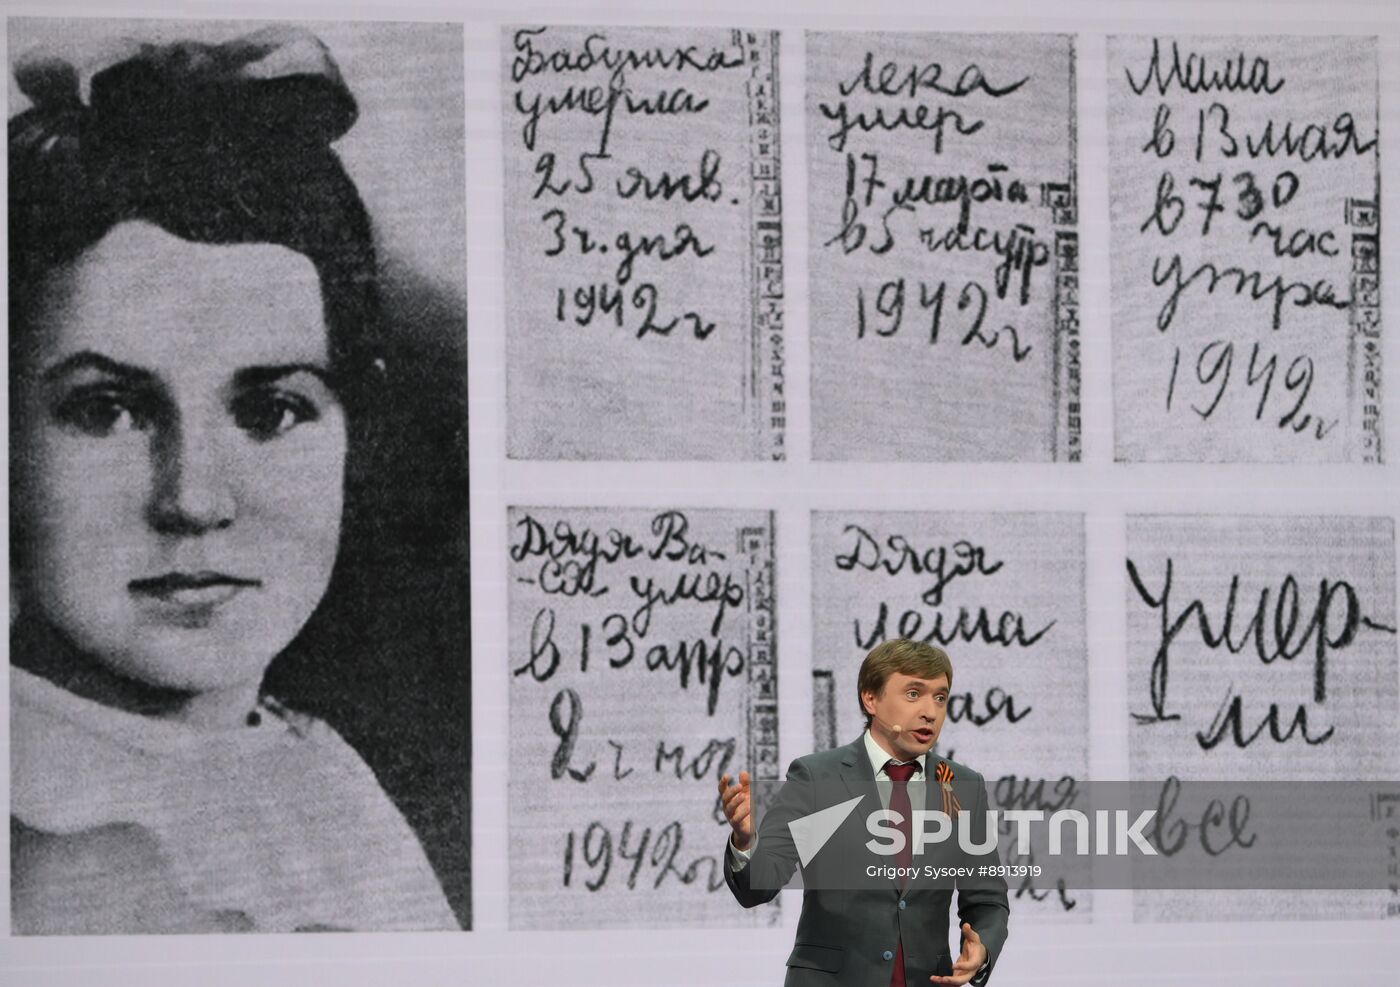 Бабушка
умерла
25 янв.
3 ч. дня
1942 г
Лека
умер
17 марта
в 5 часутр
1942 г
Мама
в 13 мая
в 7 30
час
утра
1942 г
Дядя Ва-
-ся умер
в 13 апр
2 ч ноч
1942 г
Дядя
Леша
ая
дня
г
умер-
-ли
все
SPUTNIK
Grigory Sysoev #8913919